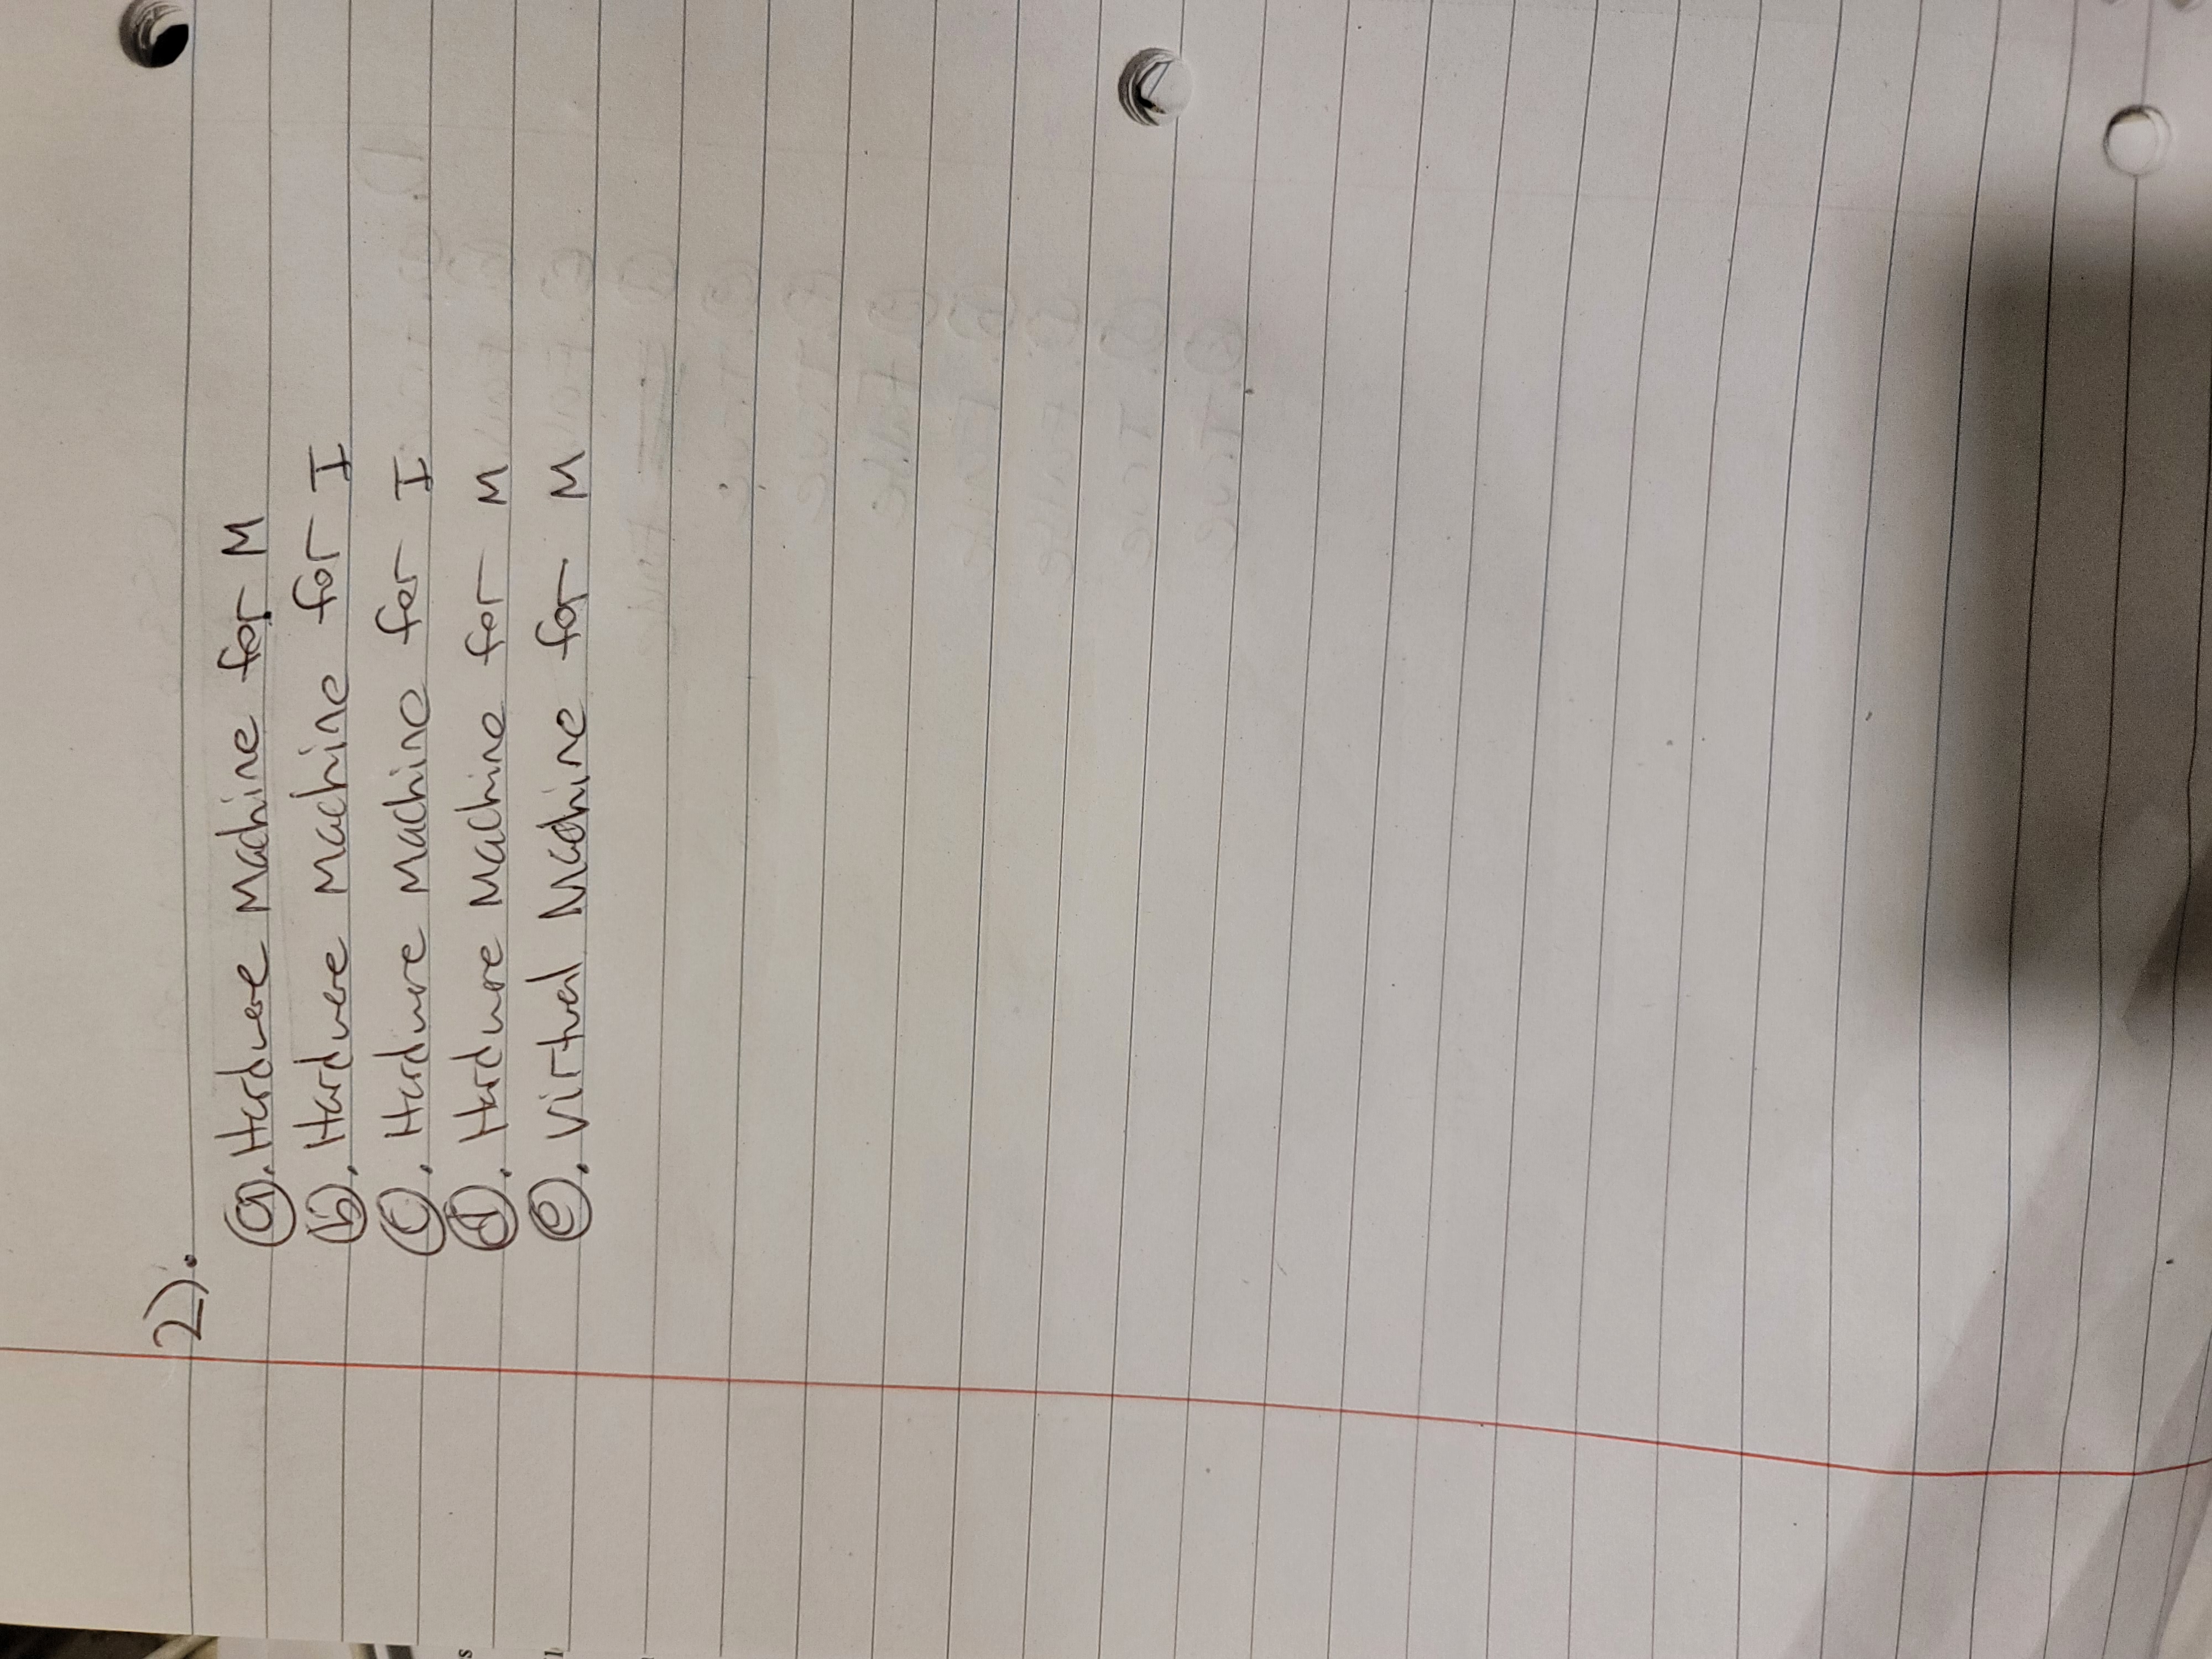 2).
a. Hardware Machine for M
b. Hardware Machine for I
c. Hardware Machine for I
d. Hardware Machine for M
e. Virtual Machine for M